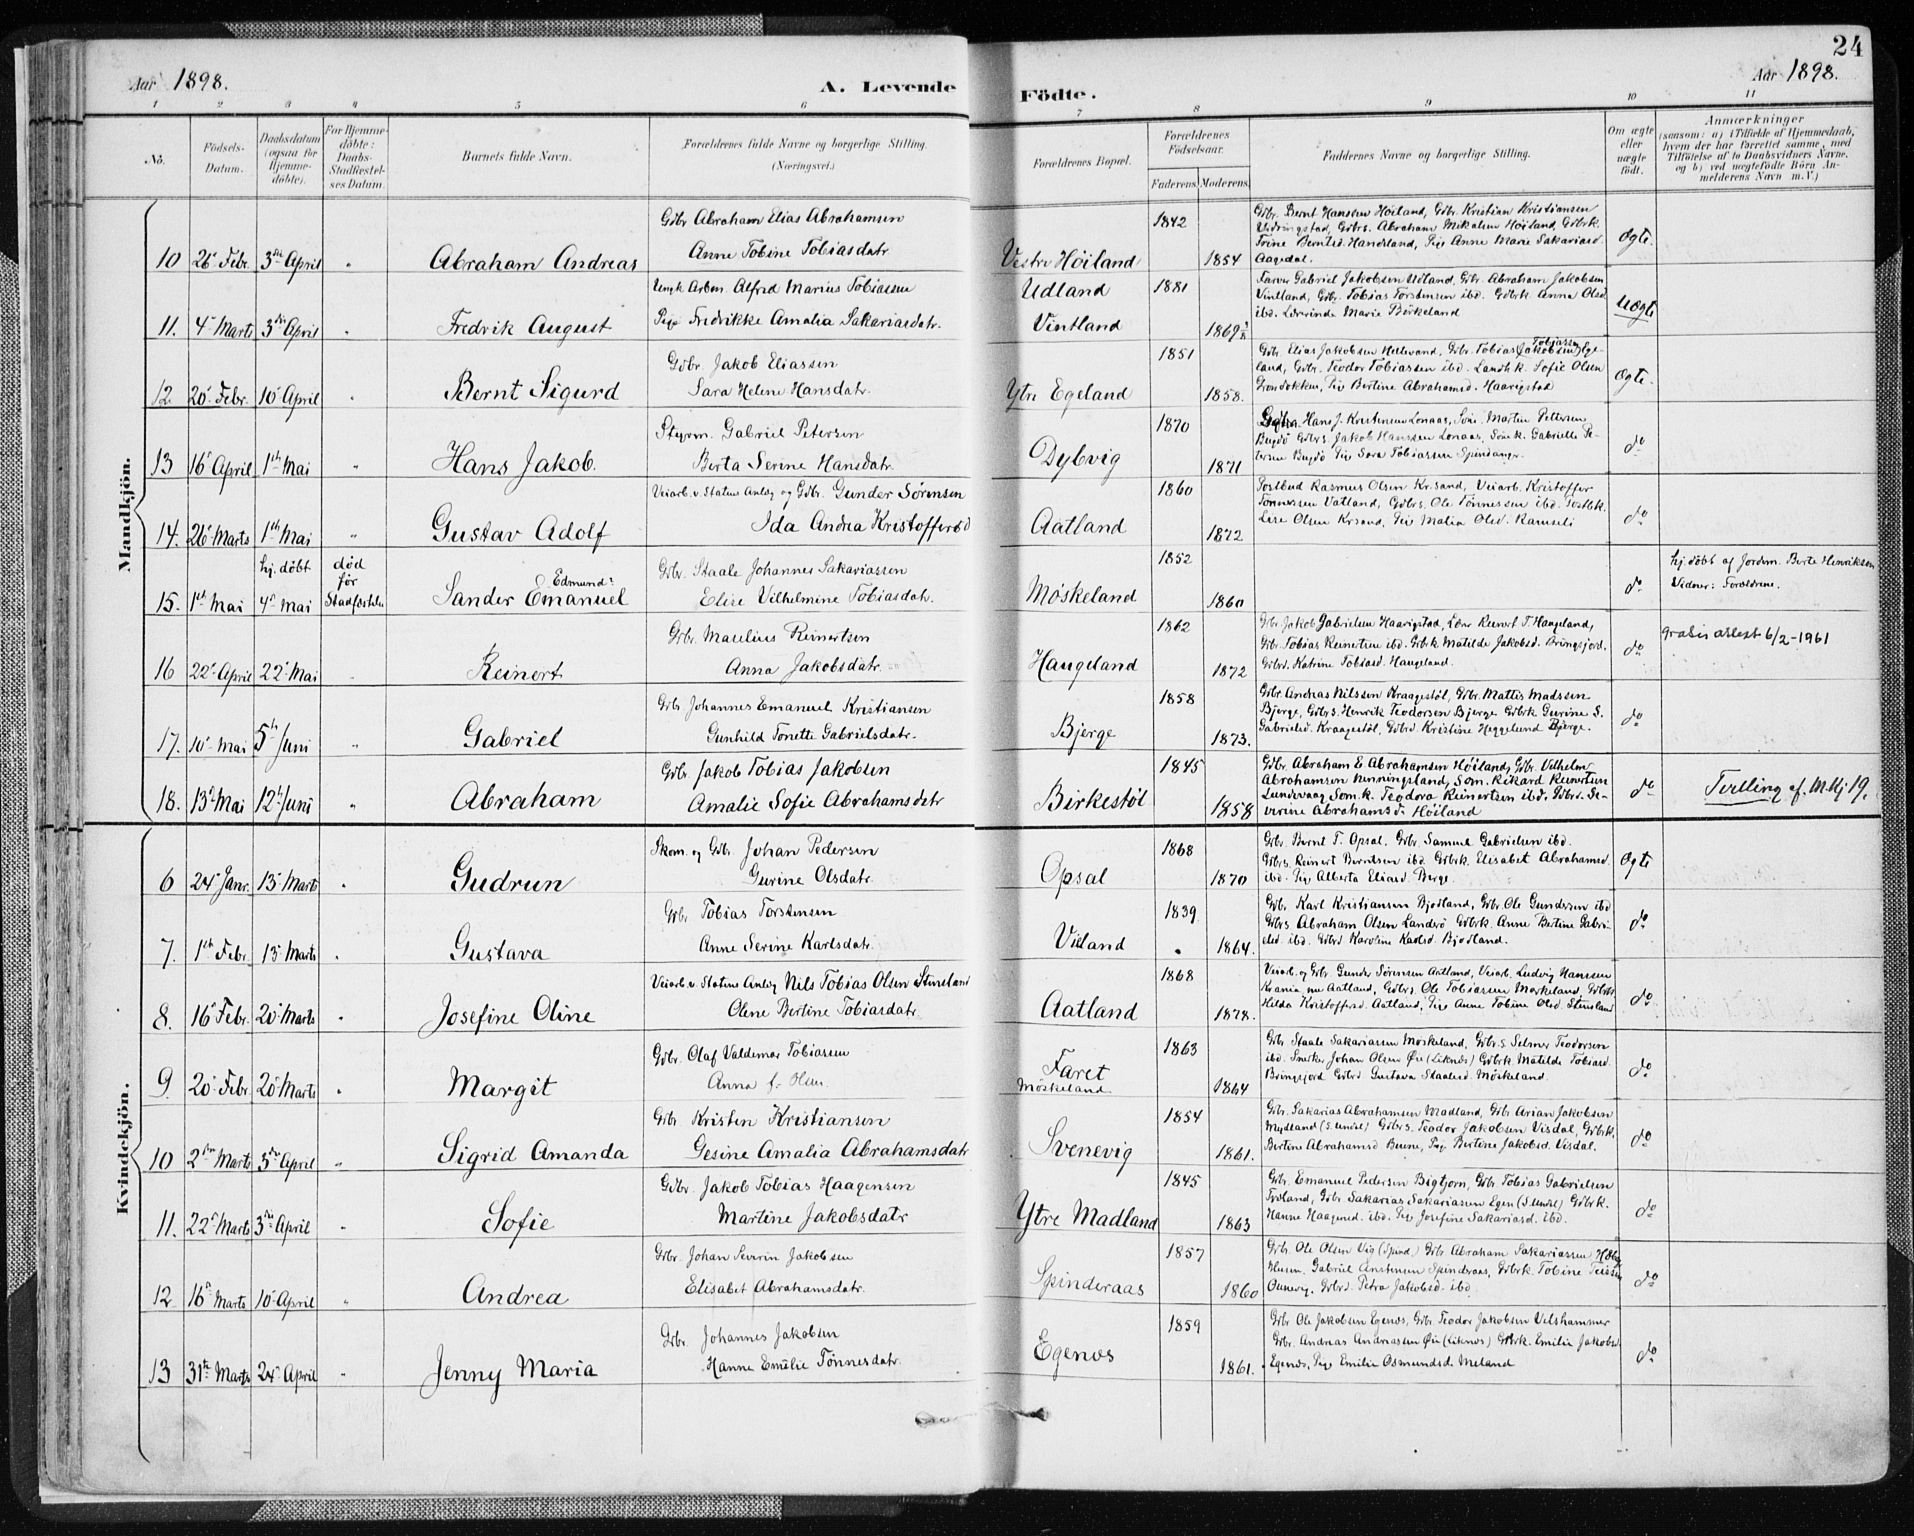 24
Aar 1898. A. Levende Födte. Aar 1898.
1 2 3 4 5 6 7 8 9 10 11
No. Födsels-Datum. Daabsdatum (ogsaa for Hjemme-döbte). For Hjemme-döbte: Daabs-Stadfæstel-ses Datum. Barnets fulde Navn. Forældrenes fulde Navne og borgerlige Stilling. (Næringsvei.) Forældrenes Bopæl. Forældrenes Födselsaar. Faderens. Moderens. Faddernes Navne og borgerlige Stilling. Om ægte eller uægte födt. Anmærkninger (saasom: a) i Tilfælde af Hjemmedaab, hvem der har forrettet samme, med Tilföielse af to Daabsvidners Navne, og b) ved uægtefödte Börn Anmelderens Navn m. V.)
Mandkjön.
Gdbr Abraham Elias Abrahamsen 1842 Gdbr. Bernt Hanssen Høiland, Gdbr. Kristian Kristiansen
Gdbrs. Abraham Mikalsen Høiland Gdbrk.
10 26 Febr. 3die April " Abraham Andreas Anne Tobine Tobiasdatr Vestre Høiland 1854 Trine Berntsd. Handeland, Pige Anne Marie Sakariasd. Aagedal. Ægte.
Ungk Arben. Alfred Marius Tobiassen Udland 1881 Farver Gabriel Jakobsen Udland Gdbr. Abraham Jakobsen
Vintland, Gdbr. Tobias Torstensen ibd. Gdbrk Anna Olsd
11. 4de Marts 3die April " Fredrik August Pige Fredrikke Amalia Sakariasdatr. Vintland 1869 ibd. Lærerinde Marie Birkeland Uægte
Gdbr. Jakob Eliassen 1851 Gdbr. Elias Jakobsen Hellevand, Gdbr. Tobias (Jakobsen) Tobiassen Ege-
land, Gdbr. Teodor Tobiassen ibd. Landh.k. Sofie Olsen
12. 20 Febr. 10 April " Bernt Sigurd Sara Helene Hansdatr. Ytre Egeland 1858. Pige Bertine Abrahamsd. Haarigstad Ægte.
Styrm. Gabriel Petersen 1870 Hans J. Kristensen Lonaas, Martin Pettersen
Gdbrs. Jakob Hanssen Lonaas, Søm.k. Gabrielle Pe-
13 16 April 1ste Mai " Hans Jakob. Berta Serine Hansdatr. Dybvig 1871 tersen Pige Sara Tobiassen Spindanger do
Veiarb. v. Statens Anlæg og Gdbr. Gunder Sørensen 1860 Postbud Rasmus Olsen Kr.sand, Veiarb. Kristoffer
Tønnessen Vatland, Gdbrs. Ole Tønnessen ibd. Postb.k.
14. 26 Marts 1ste Mai " Gustav Adolf Ida Andrea Kristoffersd Aatland 1872 Lise Olsen Krsand, Pige Malia Olsd. Ramseli do
hj. døbt død før Stadfæstelse Gdbr. Staale Johannes Sakariassen 1852 hj. døbt af Jordm. Berte Henriksen
15. 1ste Mai 4de Mai Sander Edmund Emanuel Elise Vilhelmine Tobiasdatr. Møskeland 1860 do Vidner: Forældrene.
Gdbr. Maurlius Reinertsen 1862 Gdbr. Jakob Gabrielsen Haarigstad, Lærer Reinert T. Haugeland, gratis attest 6/2-1961
Gdbr. Tobias Reinertsen ibd. Gdbrk Matilde Jakobsd. Bringsjord.
16 22 April 22 Mai Reinert Anna Jakobsdatr. Haugeland 1872 Gdbrd. Katrine Tobiasd. Haugeland. do
Gdbr. Johannes Emanuel Kristiansen 1858 Gdbr. Andreas Nilssen Kraagestøl, Gdbr. Mattis Madssen
Bjerge, Gdbrs. Henrik Teodorsen Bjerge Gdbrk Gurine S.
17. 10 Mai 5te Juni " Gabriel Gunhild Tonette Gabrielsdatr. Bjerge 1873. Gabrielsd. Kraagestøl, Gdbrd Kristine Heggelund Bjerge. do
Gdbr. Jakob Tobias Jakobsen 1845 Gdbr. Abraham E Abrahamsen Høiland, Gdbr. Vilhelm
Abrahamsen Rinningsland, Søm. Rikard Reinertsen
18. 13 Mai 12te Juni " Abraham Amalie Sofie Abrahamsdatr Birkestøl 1858 Lundevaag Søm.k. Teodora Reinertsen ibd. Gdbrd. Se-
verine Abrahamsd. Høiland do Tvilling af. Mkj 19.
Kvindekjön.
Skom. og Gdbr Johan Pedersen 1868 Gdbr. Bernt T. Opsal, Gdbr. Samuel Gabrielsen ibd.
Gdbrs. Reinert Berntsen ibd. Gdbrk. Elisabet Abrahamsd.
6 24 Janr. 13 Marts " Gudrun Gurine Olsdatr. Opsal 1870 ibd. Pige Alberta Eliasd. Berge. Ægte
Gdbr Tobias Torstensen 1839 Gdbr. Karl Kristiansen Bjodland, Gdbr. Ole Gundersen ibd
Gdbrs Abraham Olsen Landerø Gdbrk. Anne Bertine Gabri-
7. 1ste Febr. 13 Marts " Gustava Anne Serine Karlsdatr. 1864. elsd. ibd. Gdbrd Karoline Karlsd. Bjodland. do
Veiarb. v. Statens Anlæg Nils Tobias Olsen Stensland 1868 Veiarb. og Gdbr Gunder Sørensen Aatland, Veiarb. Ludvig Hanssen
Aatland, Gdbrs. Ole Tobiassen Møskeland, Gdbrk
8. 16 Febr. 20 Marts " Josefine Oline Olene Bertine Tobiasdatr. Aatland 1878. Hilda Kristoffersd. Aatland, Pige Anne Tobine Olsd. Stensland do
Gdbr. Olaf Valdemar Tobiassen 1863 Gdbr Staale Sakariassen Møskeland, Gdbr.s. Selmer Teodorsen
ibd. Snekker Johan Olsen Øie (Liknes) Gdbrk. Matilde Tobiasd.
9. 20 Febr. 20 Marts " Margit Anna f. Olsen. Faret Møskeland 1864 Bringsjord Gdbrd Gustava Staalesd. Møskeland. do
Gdbr Kristen Kristiansen 1854 Gdbr. Sakarias Abrahamsen Madland, Gdbr Arian Jakobsen
Mydland (S. Undal) Gdbrs. Teodor Jakobsen Visdal, Gdbrk.
10 2den Marts 3die April " Sigrid Amanda Gesine Amalia Abrahamsdatr Svenevig 1861. Bertine Abrahamsd Pige Bertine Jakobsd. Visdal. do
Gdbr. Jakob Tobias Haagensen 1845 Gdbr. Emanuel Pedersen Bigbjorn, Gdbr Tobias Gabrielsen
Gdbr Sakarias Sakariassen Egen (S. Undal) Gdbrk.
11. 22 Marts 3die April " Sofie Martine Jakobsdatr Ytre Madland 1863 Hanne Haagensd. ibd. Pige Josefine Sakariasd. ibd. do
Gdbr. Johan Severin Jakobsen 1857 Gdbr. Ole Olsen Vig (Spind.) Gdbr Abraham Sakariassen
Gabriel Spinderaas, Gdbrk. Tobine
12 16 Marts 10 April " Andrea Elisabet Abrahamsdatr. Spinderaas 1860 Gdbrd. Petra Jakobsd. ibd. do
Gdbr. Johannes Jakobsen 1859 Gdbr Ole Jakobsen Egenes, Gdbr Teodor Jakobsen Vilshammer
Gdbr. Andreas Andreassen Øie (Liknes) Gdbrk. Emilie Jakobsd.
13 31te Marts 24 April " Jenny Maria Hanne Emilie Tønnesdatr. Egenes 1861. Egenes, Pige Emilie Osmundsd. Meland do